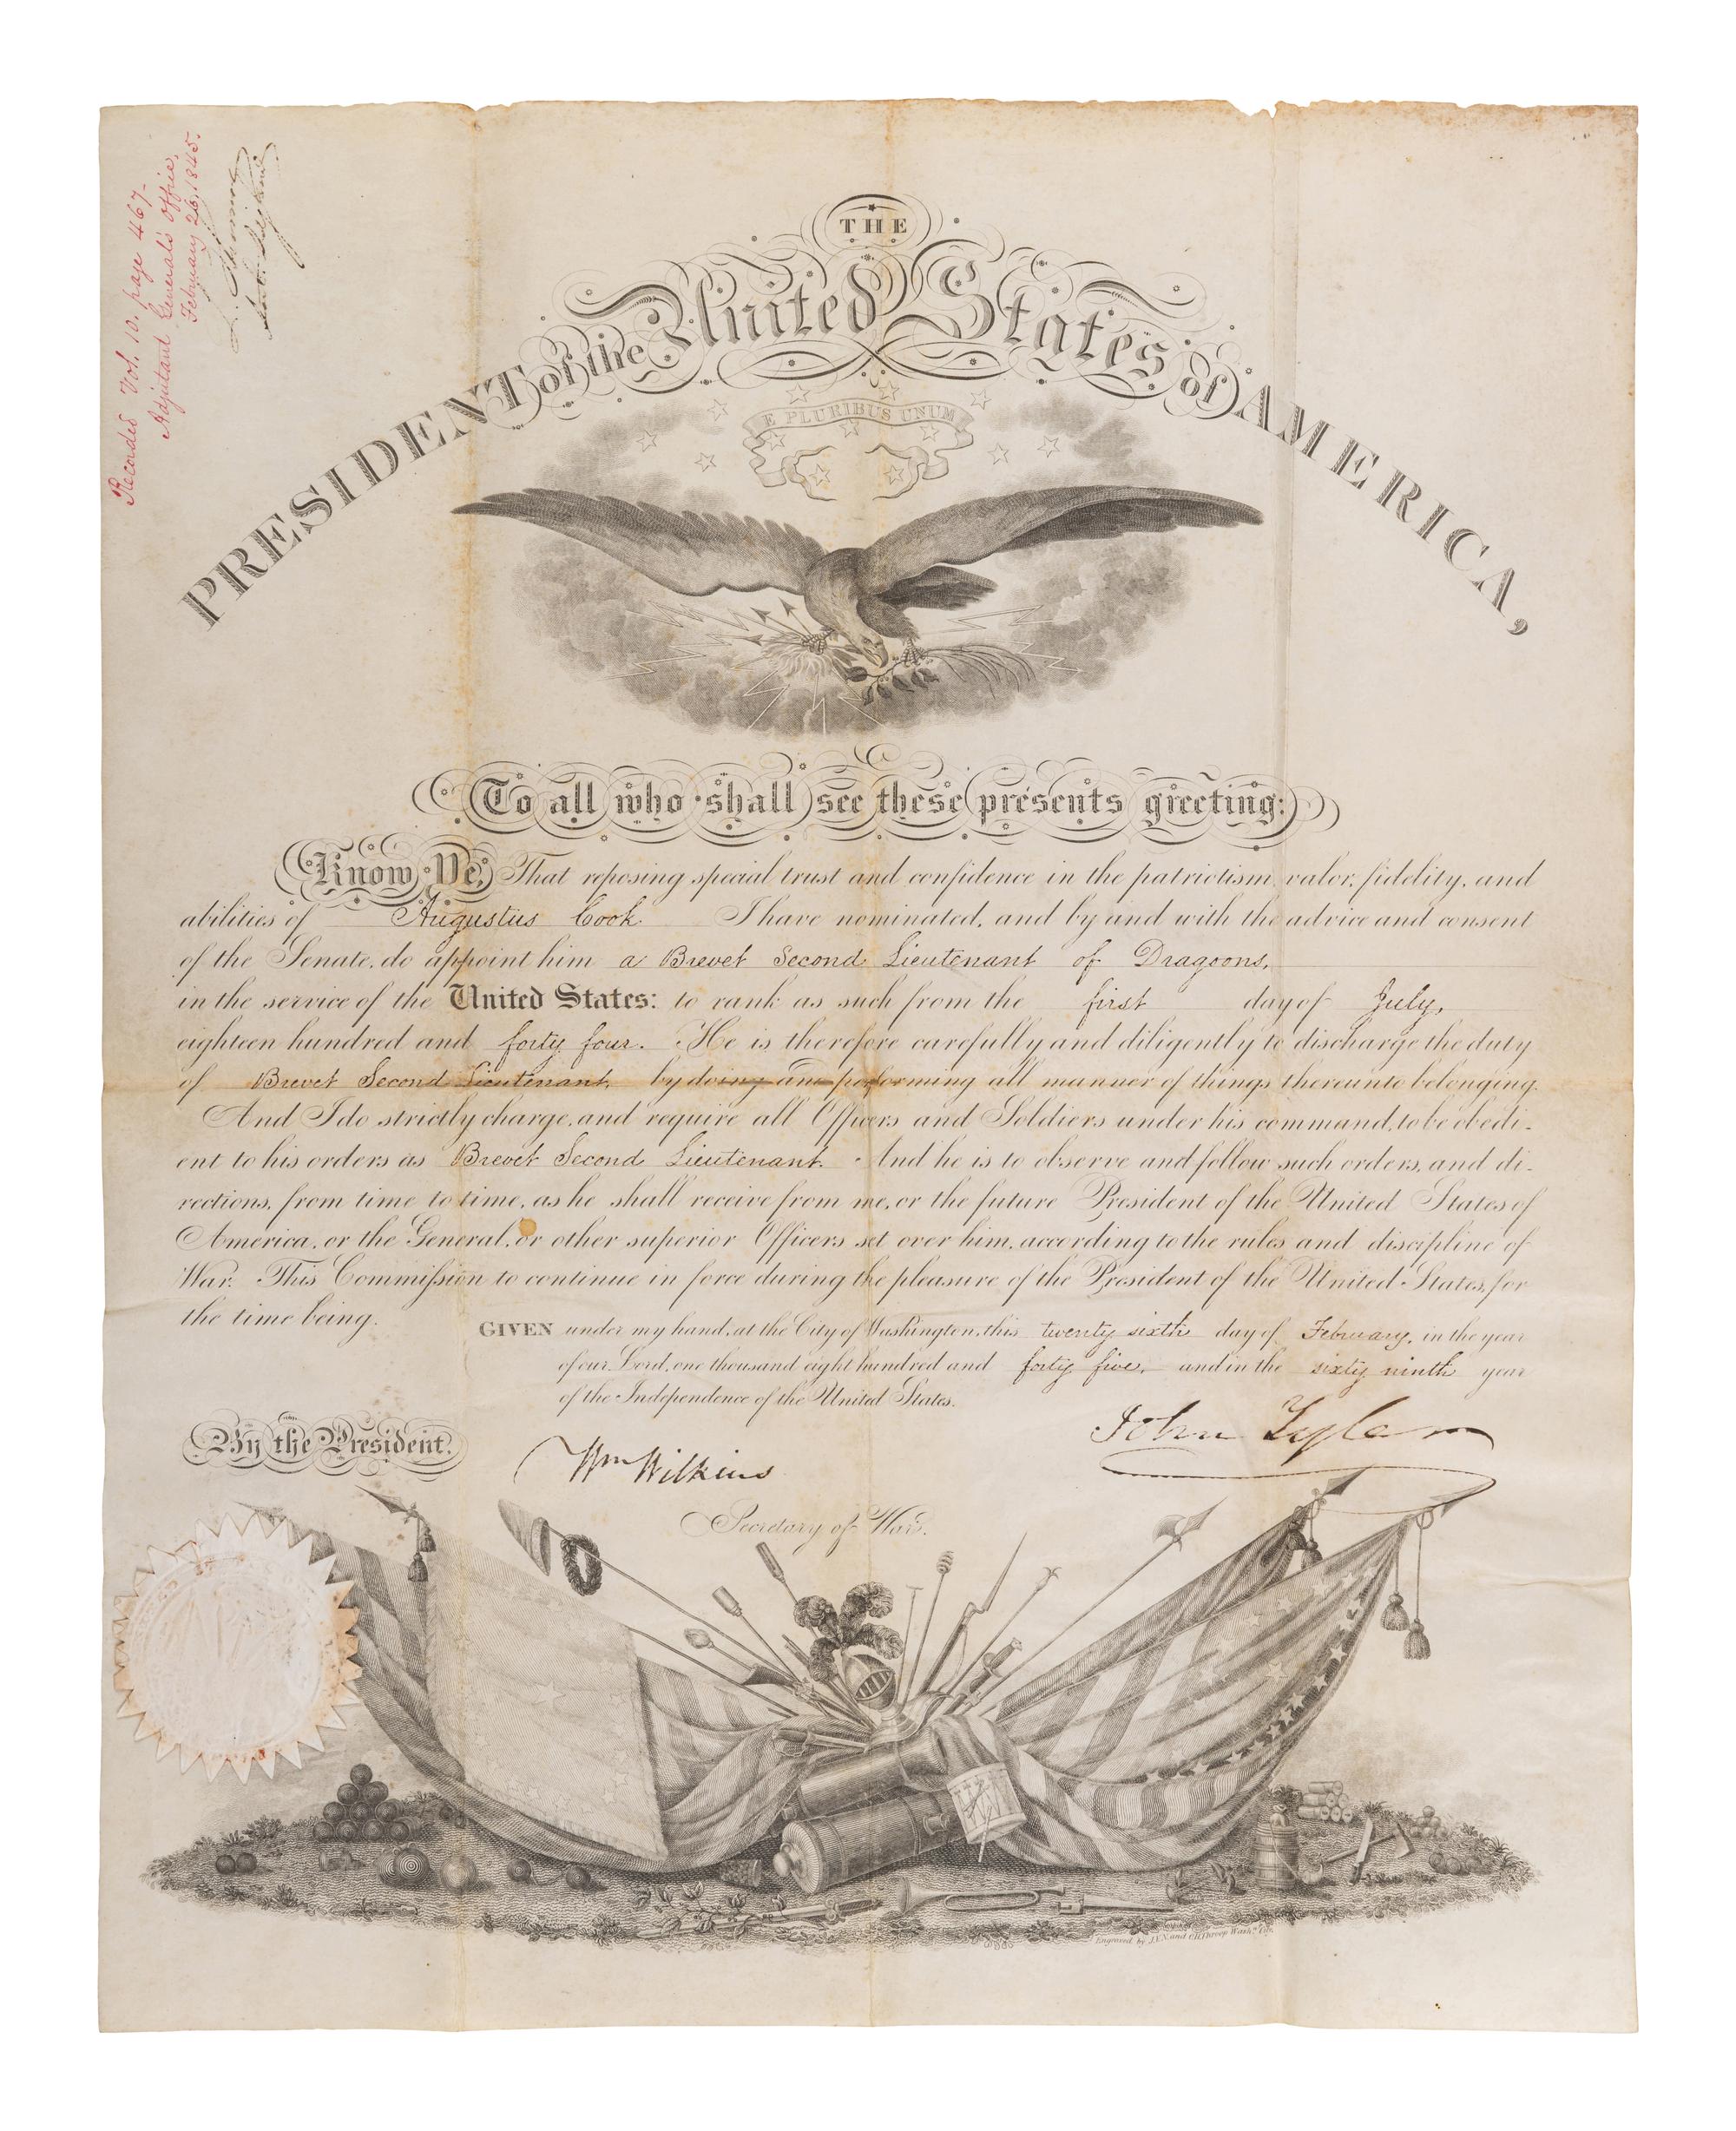 Recorded Vol. 10. page 467-
Adjutant General's Office,
February 26, 1845.
THE
PRESIDENT of the United States of AMERICA,
E PLURIBUS UNUM
To all who shall see these presents greeting:
Know Ye, That reposing special trust and confidence in the patriotism, valor, fidelity, and
abilities of Augustus Cook I have nominated, and by and with the advice and consent
of the Senate, do appoint him a Brevet Second Lieutenant of Dragoons,
in the service of the United States: to rank as such from the first day of July,
eighteen hundred and forty four. He is therefore carefully and diligently to discharge the duty
of Brevet Second Lieutenant by doing and performing all manner of things thereunto belonging.
And I do strictly charge, and require all Officers and Soldiers under his command, to be obedi-
ent to his orders as Brevet Second Lieutenant. And he is to observe and follow such orders, and di-
rections, from time to time, as he shall receive from me, or the future President of the United States of
America, or the General, or other superior Officers set over him, according to the rules and discipline of
War. This Commission to continue in force during the pleasure of the President of the United States, for
the time being.
GIVEN under my hand, at the City of Washington, this twenty sixth day of February, in the year
of our Lord, one thousand eight hundred and forty five, and in the sixty ninth year
of the Independence of the United States.
By the President.
John Tyler
Wm Wilkins
Secretary of War.
Engraved by J.V.N. and O.H. Throop Washn.